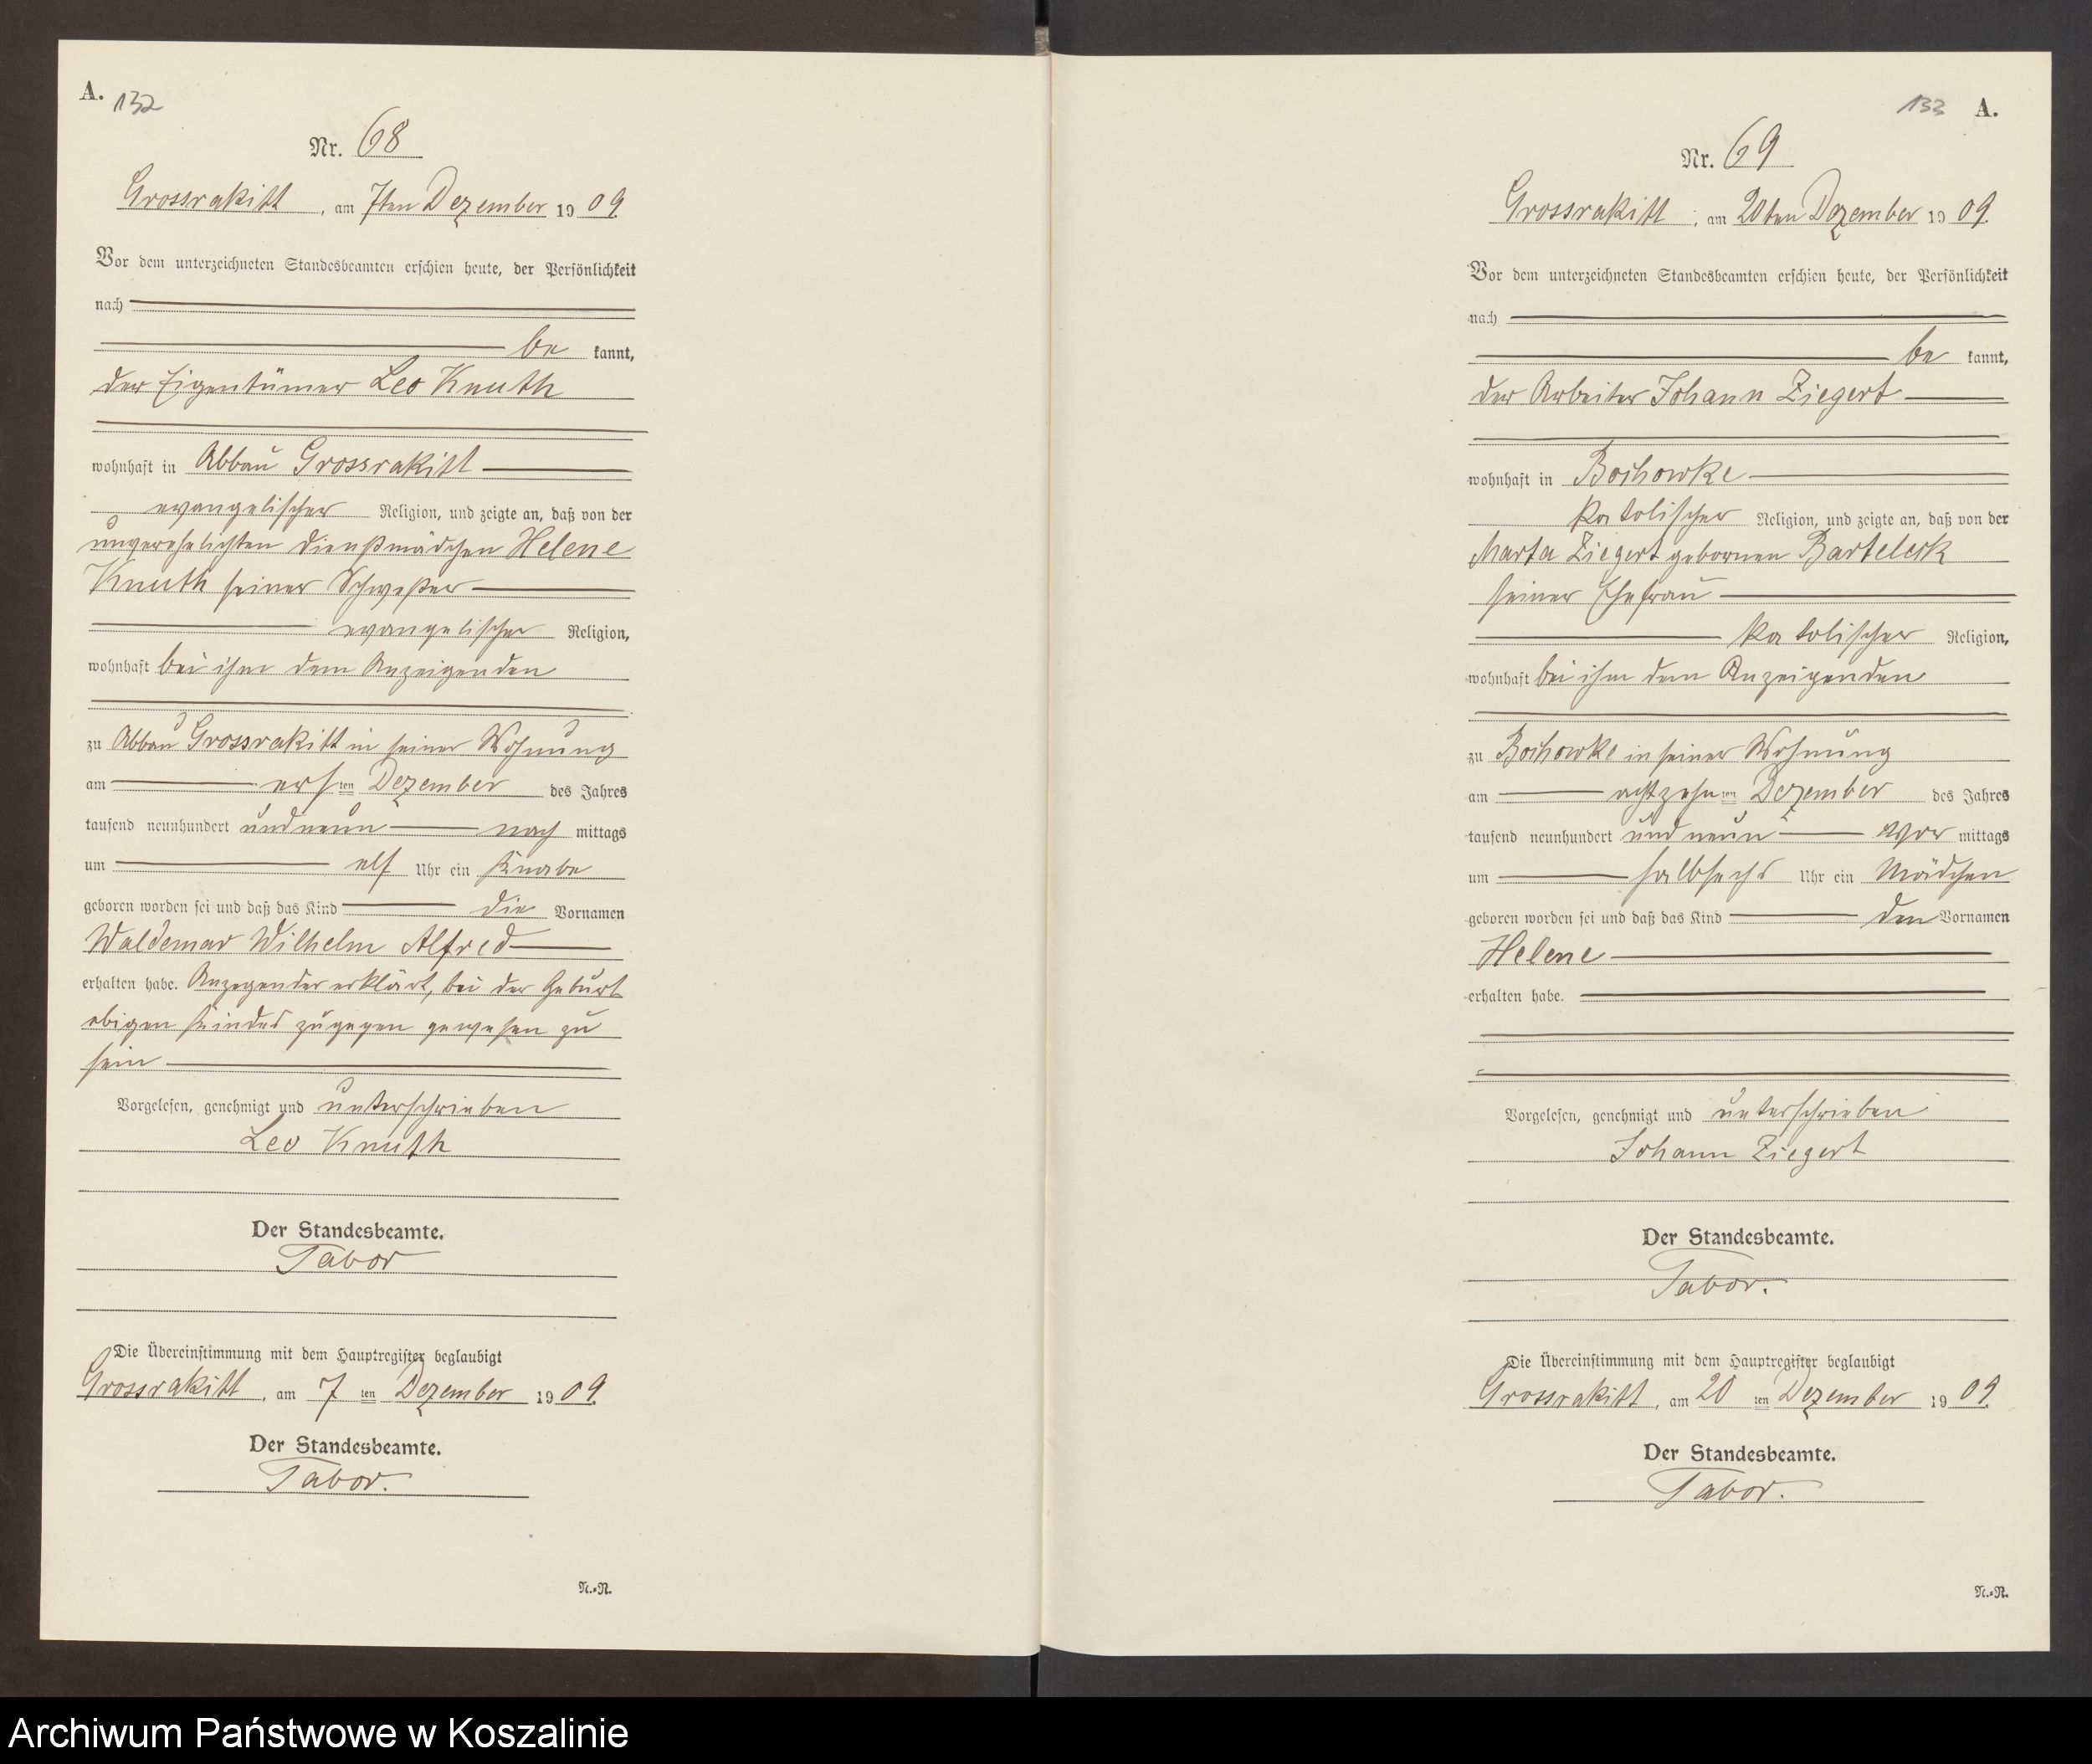 A. 132
Nr. 68
Grossrakitt, am 7ten Dezember 1909.
Vor dem unterzeichneten Standesbeamten erschien heute, der Persönlichkeit
nach
be kannt,
der Eigentümer Leo Knuth
wohnhaft in Abbau Grossrakitt
evangelischer Religion, und zeigte an, daß von der
unverehelichten Dienstmädchen Helene
Knuth seiner Schwester
evangelischer Religion,
wohnhaft bei ihm dem Anzeigenden
zu Abbau Grossrakitt in seiner Wohnung
am ersten Dezember des Jahres
tausend neunhundert und neun nach mittags
um elf Uhr ein Knabe
geboren worden sei und daß das Kind die Vornamen
Waldemar Wilhelm Alfred
erhalten habe. Anzegender erklärt, bei der Geburt
obigen Kindes zugegen gewesen zu
sein
Vorgelesen, genehmigt und unterschrieben
Leo Knuth
Der Standesbeamte.
Tabor
Die Übereinstimmung mit dem Hauptregister beglaubigt
Grossrakitt, am 7 ten Dezember 1909.
Der Standesbeamte.
Tabor.
N.=N.
133 A.
Nr. 69
Grossrakitt, am 20ten Dezember 1909.
Vor dem unterzeichneten Standesbeamten erschien heute, der Persönlichkeit
nach
be kannt,
der Arbeiter Johann Ziegert
wohnhaft in Bochowke
katolischer Religion, und zeigte an, daß von der
Marta Ziegert gebornen Barteleck
seiner Ehefrau
katolischer Religion,
wohnhaft bei ihm dem Anzeigenden
zu Bochowke in seiner Wohnung
am achtzehnten Dezember des Jahres
tausend neunhundert und neun vor mittags
um halbsechs Uhr ein Mädchen
geboren worden sei und daß das Kind den Vornamen
Helene
erhalten habe.
Vorgelesen, genehmigt und unterschrieben
Johann Ziegert
Der Standesbeamte.
Tabor.
Die Übereinstimmung mit dem Hauptregister beglaubigt
Grossrakitt, am 20 ten Dezember 1909.
Der Standesbeamte.
Tabor.
N.=N.
Archiwum Państwowe w Koszalinie